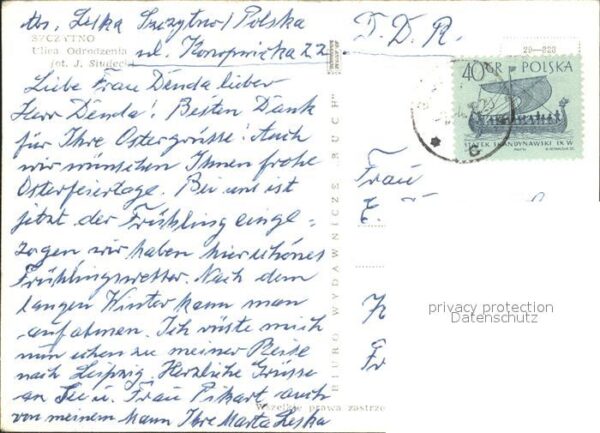 Abs. Leska Szczytno/Polska
SZCZYTNO
Ulica Odrodzenia
fot. J. Siudecki
ul. Konopnicka 22
D. D. R.
29—223
40 GR POLSKA
STATEK SKANDYNAWSKI IX W.
Liebe Frau Denda lieber
Herr Denda! Besten Dank
für Ihre Ostergrüsse! Auch
wir wünschen Ihnen frohe
Osterfeiertage. Bei uns ist
jetzt der Frühling einge=
zogen wir haben hier schönes
Frühlingswetter. Nach dem
langen Winter kann man
aufatmen. Ich rüste mich
nun schon zu meiner Reise
nach Leipzig. Herzliche Grüsse
an Sie u. Frau Pikart auch
von meinem Mann Ihre Marta Leska
BIURO WYDAWNICZE „RUCH"
Wszelkie prawa zastrze
Frau
E.
Fr
privacy protection
Datenschutz